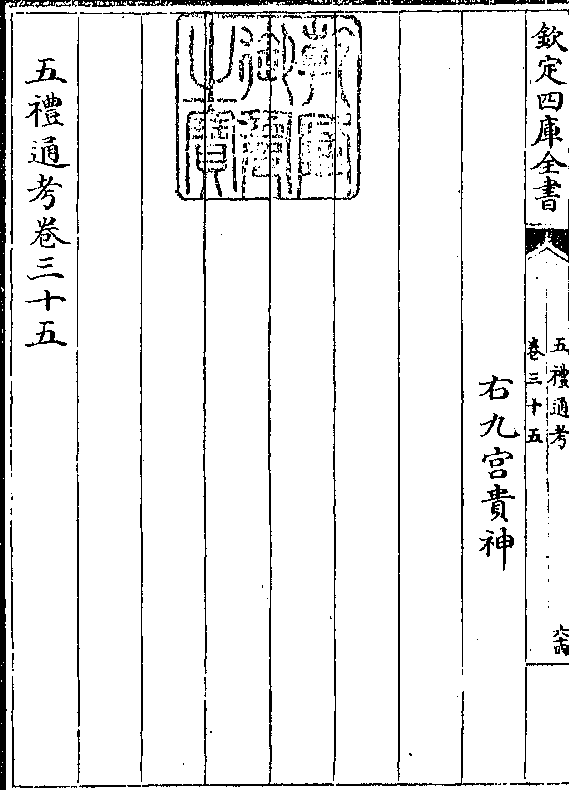 欽定四庫全書
五禮通考
卷三十五
右九宫貴神
乾隆御覽之寶
五禮通考卷三十五